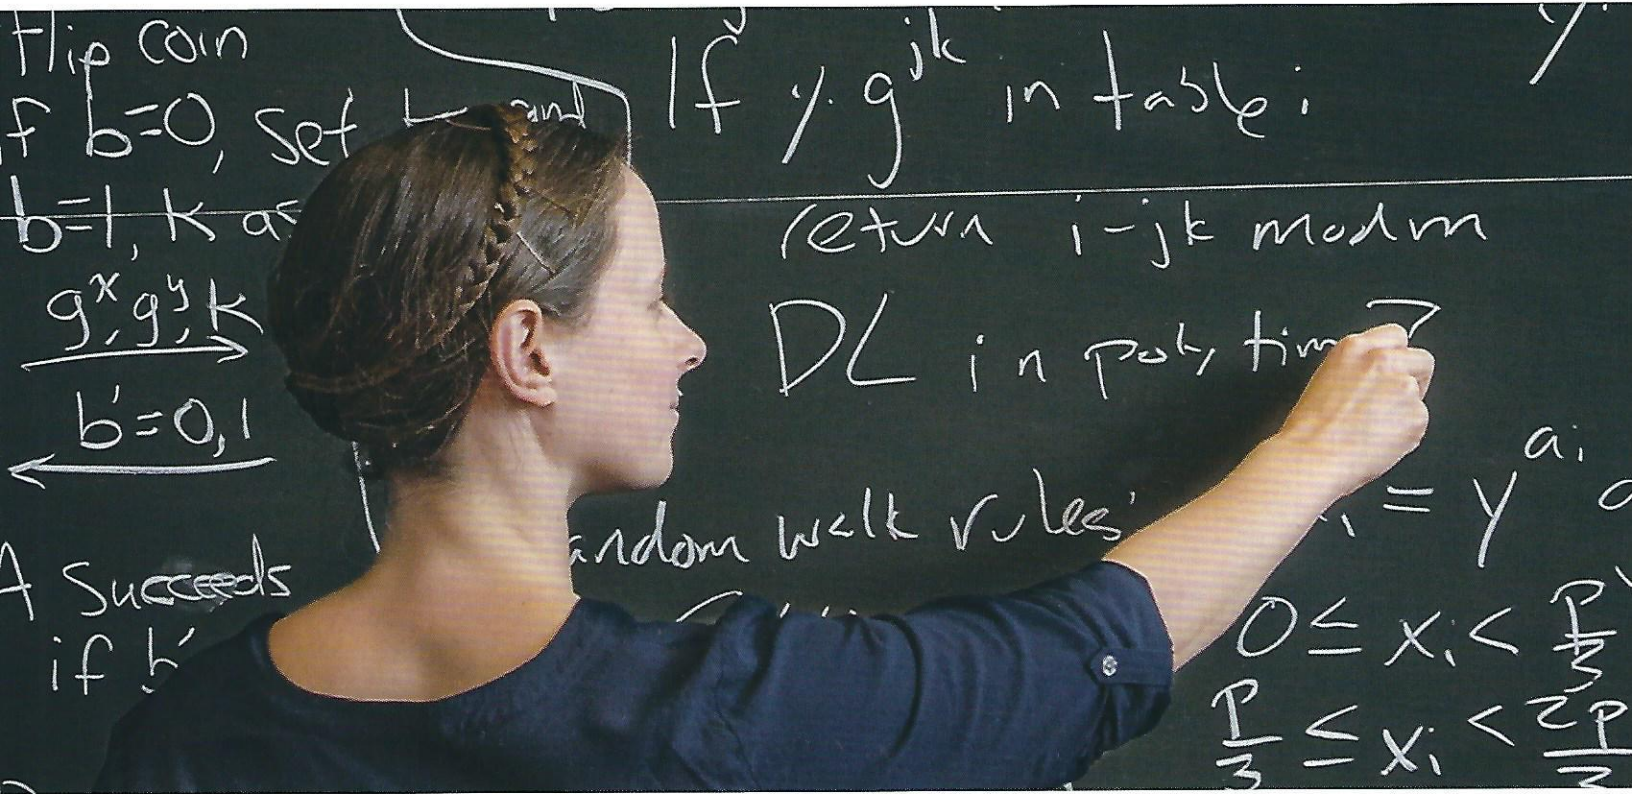 flip coin
if b=0, set k and
b=1, k as
g^x, g^y, k
b'=0,1
A Succeeds
if b'
If y·g^jk in table:
return i-jk mod m
DL in poly time?
random walk rules:
= y^a_i
0 ≤ x_i < P/3
P/3 ≤ x_i < 2P/3